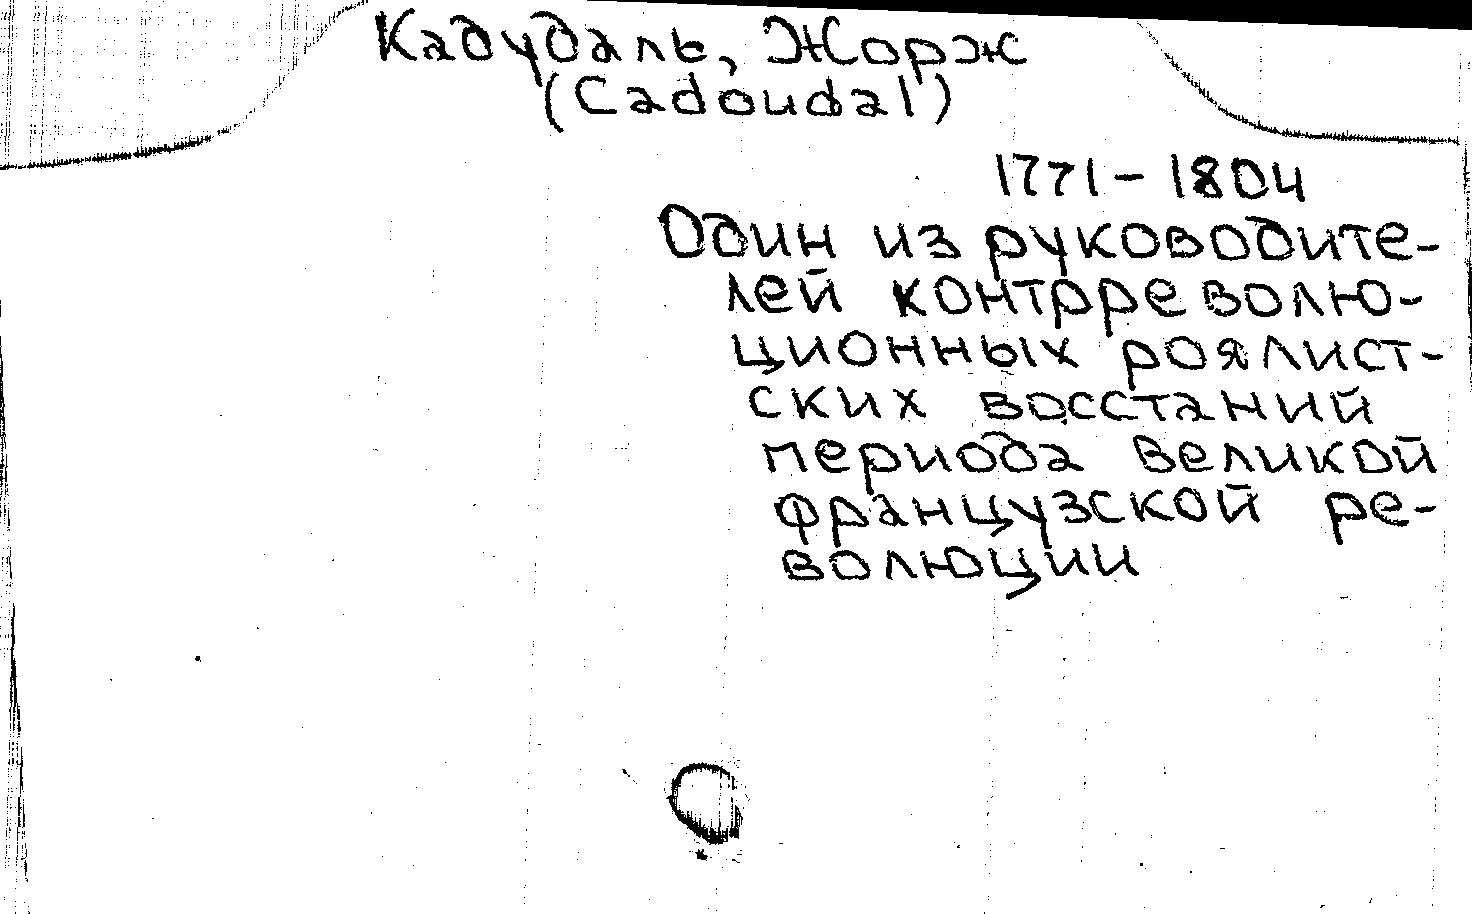 Кадудаль, Жорж
(Cadoudal)
1771-1804
Один из руководите-
лей контрреволю-
ционных роялист-
ских восстаний
периода Великой
французской ре-
волюции